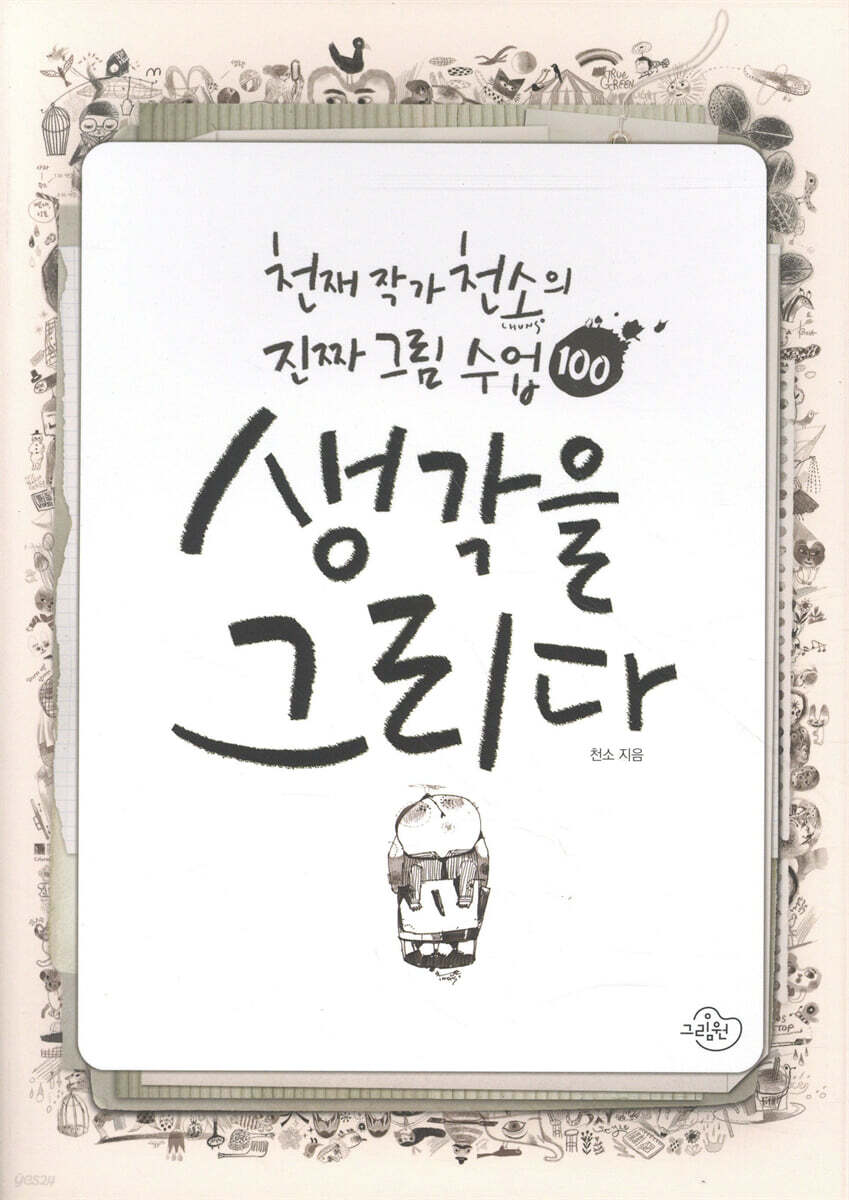 TRUE
GREEN
천재 작가 천소의
CHUNSO
진짜 그림 수업 100
생각을
그리다
천소 지음
그림원
yes24